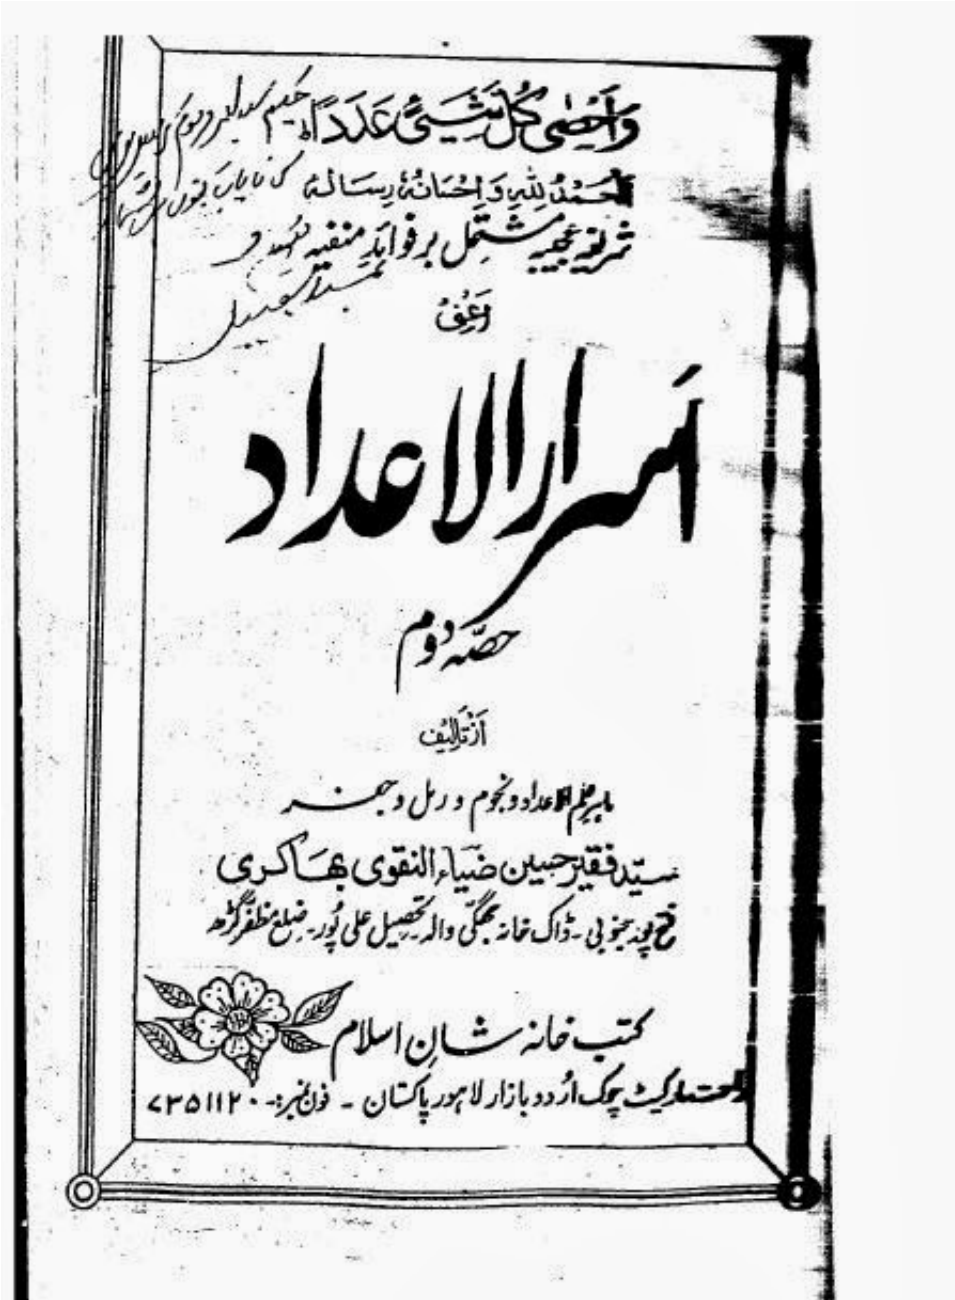 وَاَحْصٰی کُلَّ شَیْئٍ عَدَدًا
الحَمْدُ لِلّٰہِ وَاِحْسَانُہٗ رِسَالہٗ
شریفہ عجیبہ مشتمل بر فوایدِ منفیہ
اَعْنِیْ
اَسرار الاعداد
حصّہ دوم
اَزْتَالِیْف
ماہرِ علم الاعداد و نجوم و رمل و جفر
سیّد فقیر حسین ضیاء النقوی بھاکری
فتح پور جنوبی۔ ڈاک خانہ بھگی والہ۔ تحصیل علی پُور۔ ضلع مظفر گڑھ
کتب خانہ شانِ اسلام
مارکیٹ چوک اُردو بازار لاہور پاکستان ۔ فون نمبر:۔ ۷۳۵۱۱۲۰